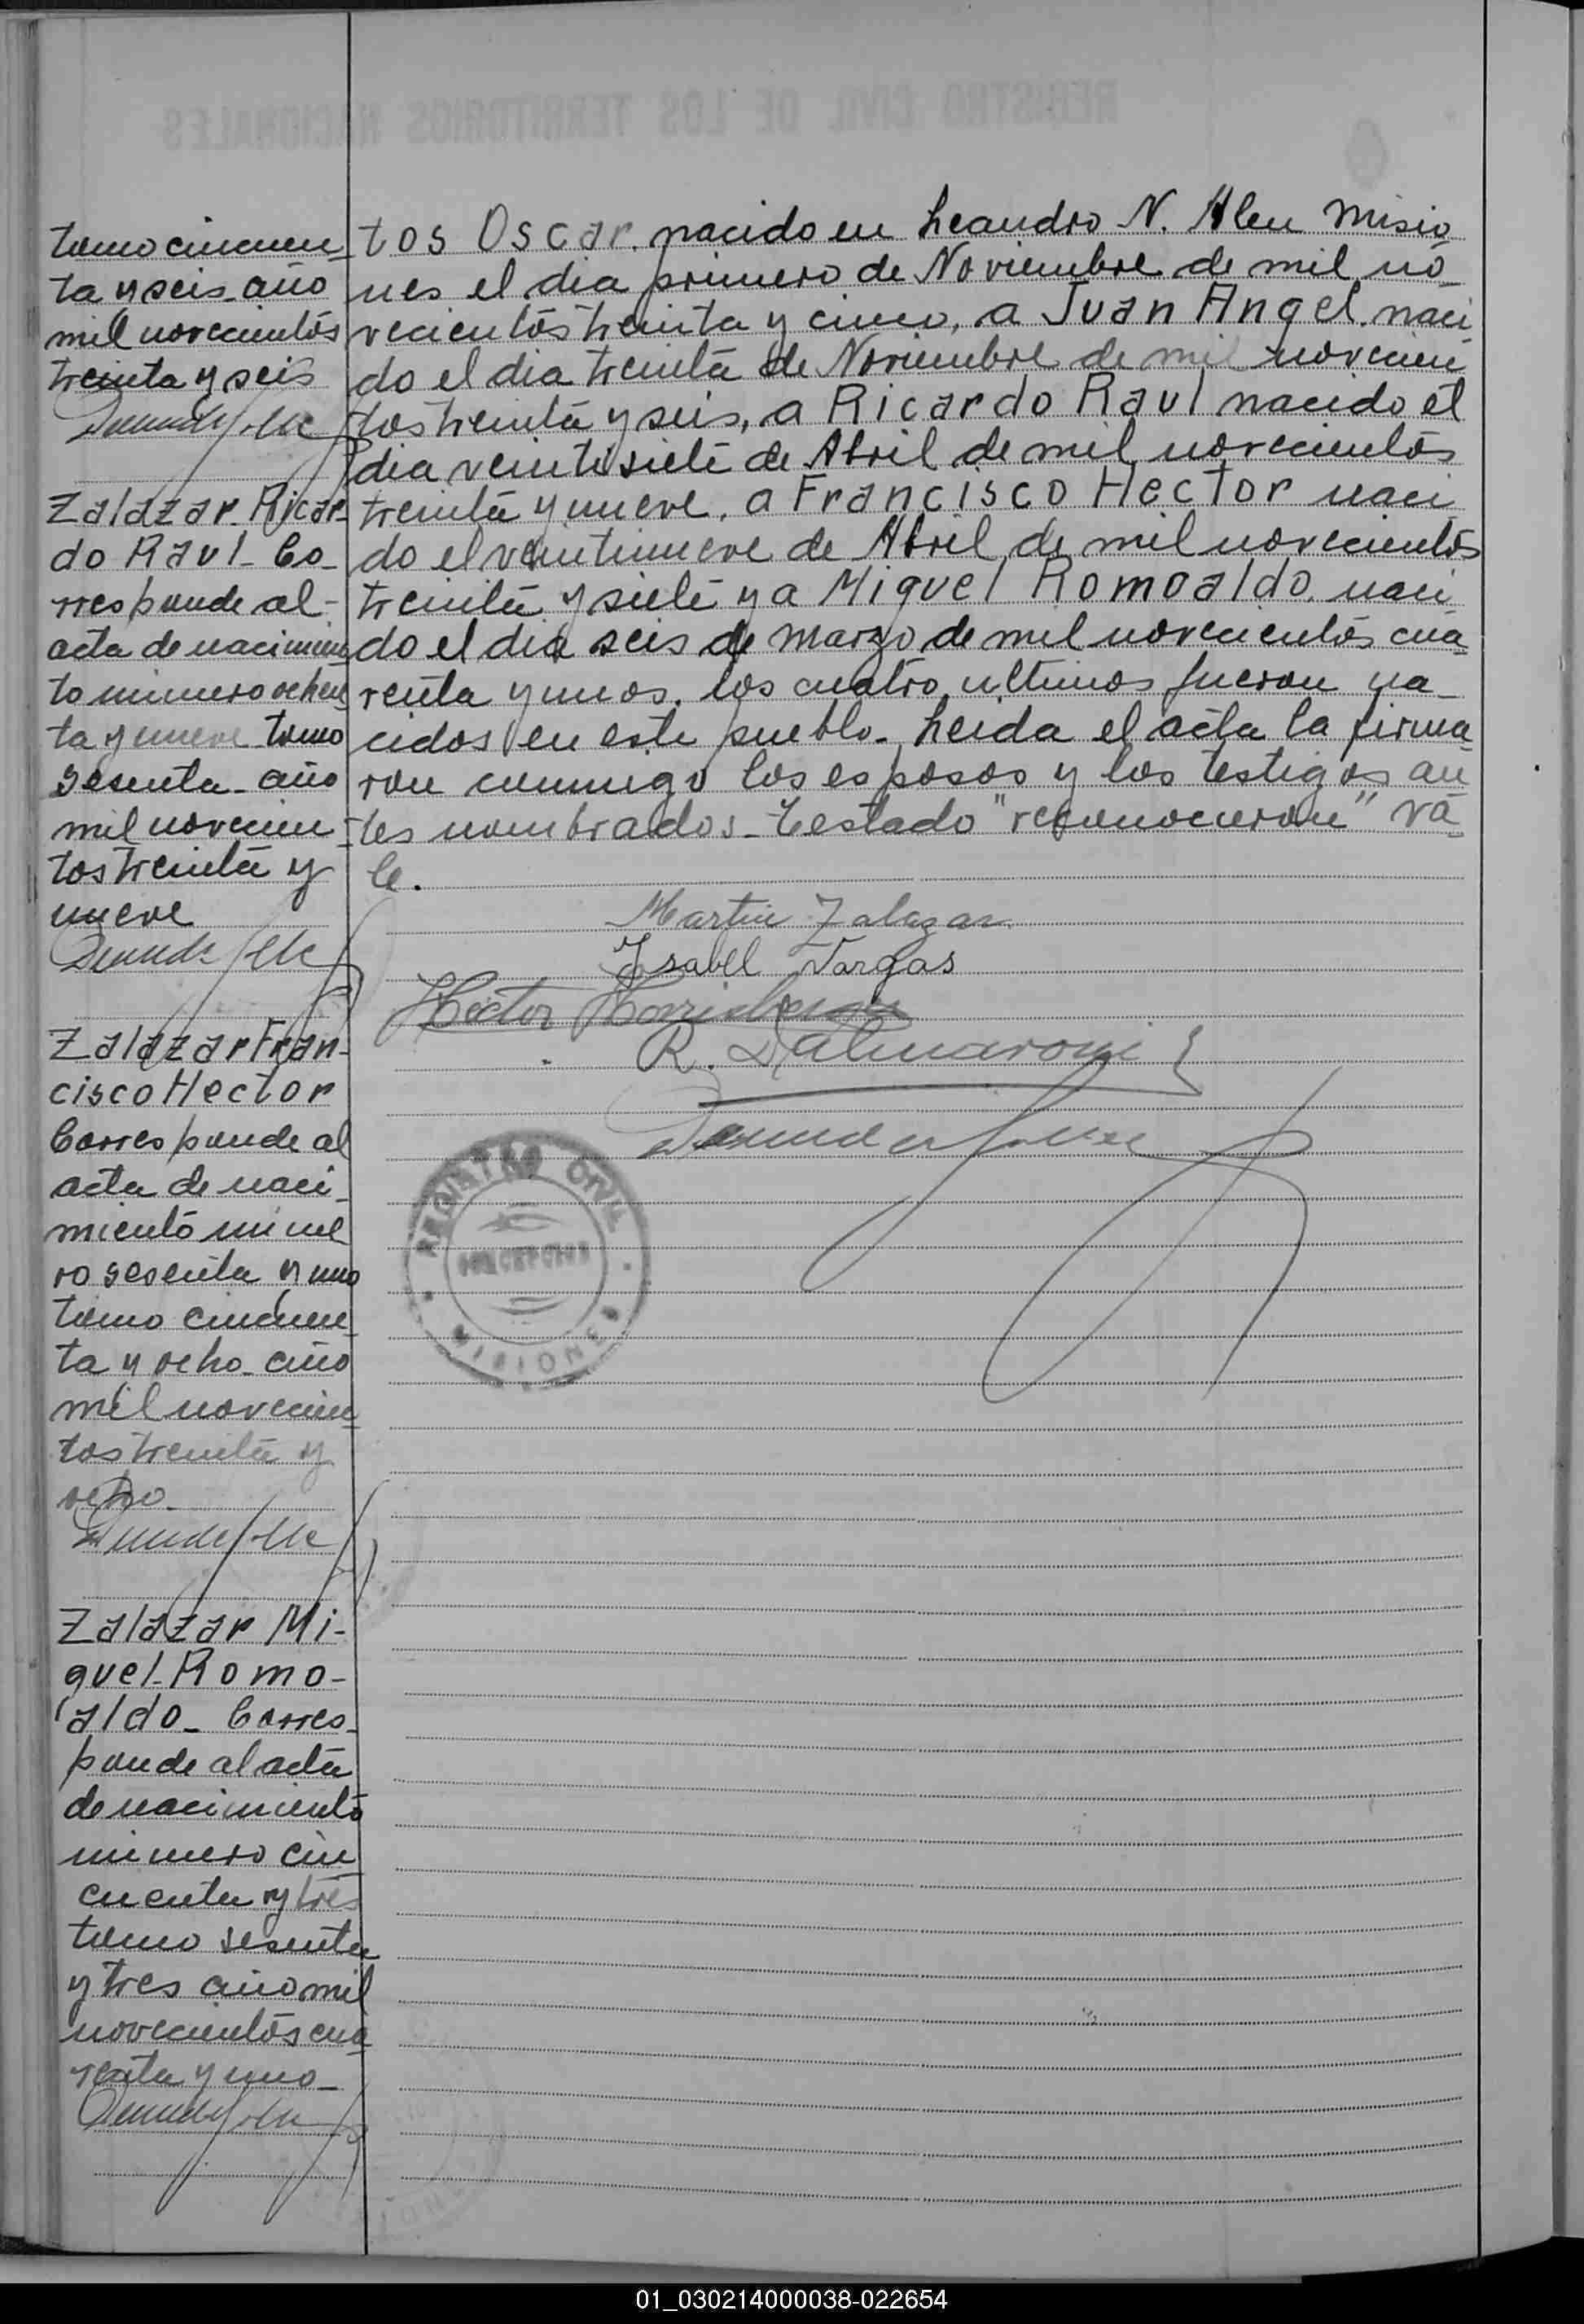 tomo cincuen
ta y seis año
mil novecientos
treinta y seis
Zalazar Ricar-
do Raul - Co-
rresponde al
acta de nacimien
to número ochen
ta y nueve tomo
sesenta - año
mil novecien
tos treinta y
nueve
Zalazar Fran-
cisco Hector
Corresponde al
acta de naci
miento núme
ro sesenta y uno
tomo cincuen
ta y ocho año
mil novecien
tos treinta y
ocho -
Zalazar Mi-
guel Romo-
aldo - Corres-
ponde al acta
de nacimiento
número cin
cuenta y tres
tomo sesenta
y tres año mil
novecientos cua
renta y uno -
tos Oscar. nacido en Leandro N. Alen Misio
nes el dia primero de Noviembre de mil no
vecientos treinta y cinco, a Juan Angel. naci
do el dia treinta de Noviembre de mil novecien
tos treinta y seis, a Ricardo Raul nacido el
dia veintisiete de Abril de mil novecientos
treinta y nueve, a Francisco Hector naci
do el veintinueve de Abril de mil novecientos
treinta y siete y a Miguel Romoaldo. naci
do el dia seis de marzo de mil novecientos cua
renta y unos. los cuatro ultimos fueron na-
cidos en este pueblo - Leida el acta la firma
ron conmigo los esposos y los testigos an
tes nombrados - Testado "reconocieron" va
le.
Martin Zalazar
Ysabel Vargas
Hector
R. Dalmaroni
REGISTRO CIVIL
CONCEPCION
MISIONES
REGISTRO CIVIL DE LOS TERRITORIOS NACIONALES
01_030214000038-022654